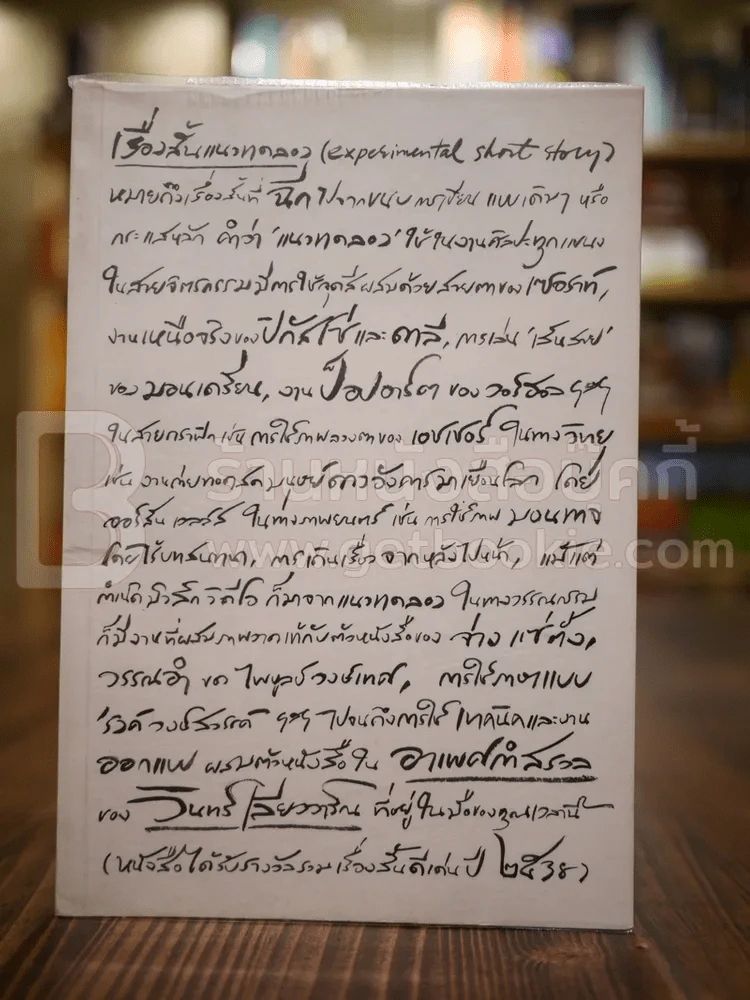 เรื่องสั้นแนวทดลอง (experimental short story)
หมายถึงเรื่องสั้นที่ ฉีกไปจากขนบการเขียน แบบเดิมๆ หรือ
กระแสหลัก คำว่า 'แนวทดลอง' ใช้ในงานศิลปะทุกแขนง
ในสายจิตรกรรมมีการใช้จุดสีผสมด้วยสายตาของเซอราท์,
งานเหนือจริงของปิกัสโซ่และดาลี, การเล่น 'เส้นสาย'
ของมอนเดรียน, งานป็อปอาร์ตของวอร์ฮอล ฯลฯ
ในสายกราฟิก เช่น การใช้ภาพลวงตาของเอชเชอร์ ในทางวิทยุ
เช่น งานถ่ายทอดสดมนุษย์ดาวอังคารมาเยือนโลก โดย
ออร์สัน เวลล์ส ในทางภาพยนตร์ เช่น การใช้ภาพมอนทาจ
โดยไร้บทสนทนา, การเดินเรื่องจากหลังไปหน้า, แม้แต่
กำเนิดมิวสิกวิดีโอ ก็มาจากแนวทดลอง ในทางวรรณกรรม
ก็มีงานที่ผสมภาพวาดเข้ากับตัวหนังสือของ จ่าง แซ่ตั้ง,
วรรณอำ ของ ไพบูลย์ วงษ์เทศ, การใช้ภาษาแบบ
'รงค์ วงษ์สวรรค์ ฯลฯ ไปจนถึงการใช้เทคนิคและงาน
ออกแบบ ผสมตัวหนังสือใน อาเพศกำสรวล
ของ วินทร์ เลียววาริณ ที่อยู่ในมือของคุณเวลานี้
(หนังสือได้รับรางวัลรวมเรื่องสั้นดีเด่นปี ๒๕๓๘)
ร้านหนังสือบุ๊คกี้
www.getbookie.com